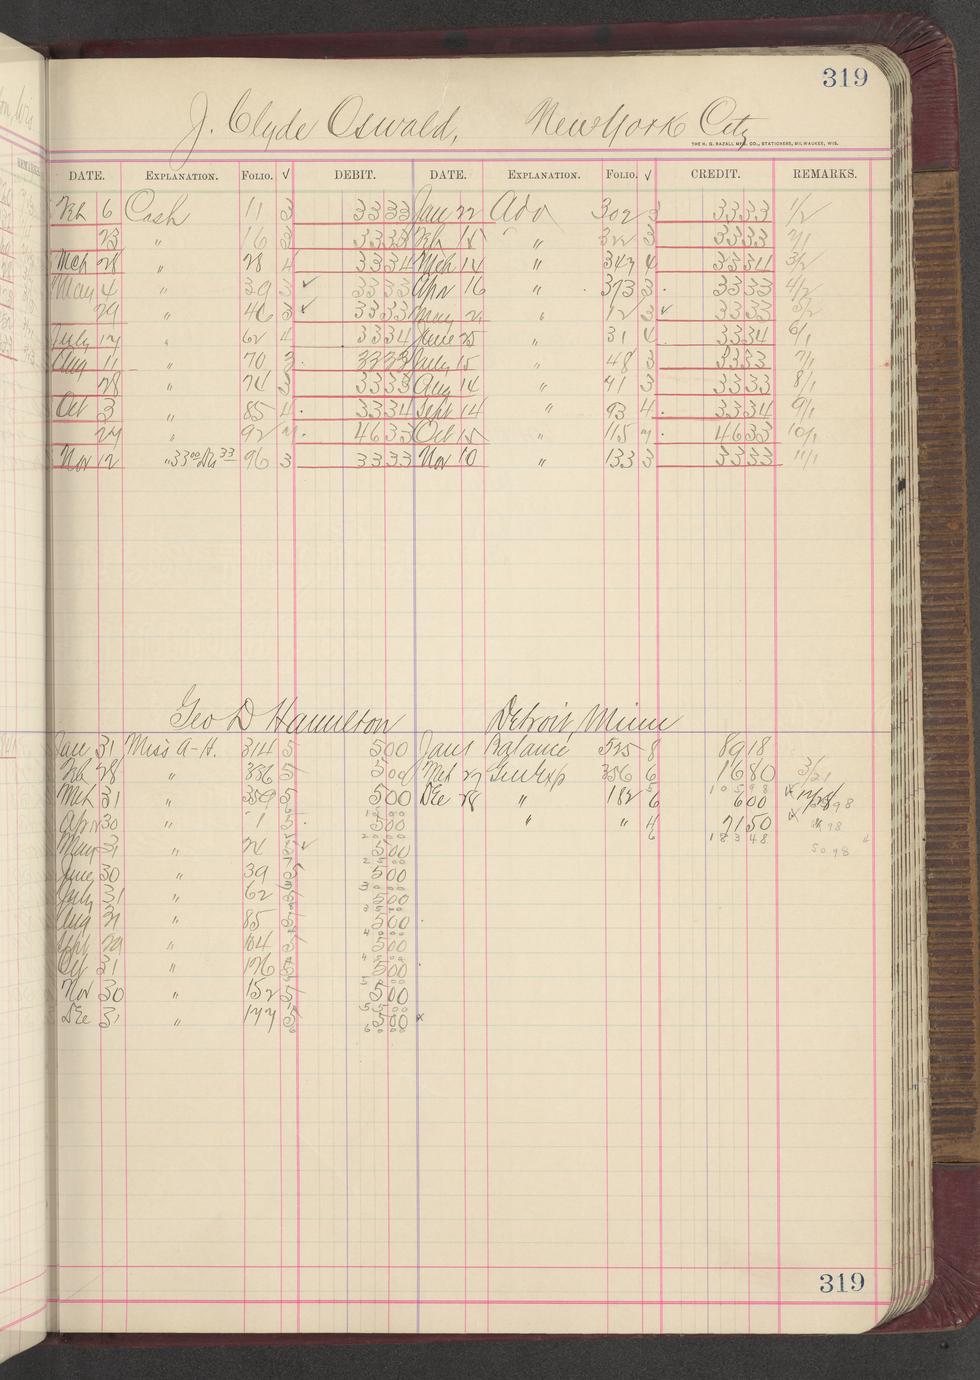 319
J. Clyde Oswald, New York City
THE H. G. RAZALL MFG. CO., STATIONERS, MILWAUKEE, WIS.
DATE. EXPLANATION. FOLIO. √ DEBIT. DATE. EXPLANATION. FOLIO. √ CREDIT. REMARKS.
Feb 6 Cash 11 3 3333 Jan 22 Adv 302 3 3333 1/2
23 " 16 3 3333 Feb 15 " 322 3 3333 2/1
Mch 28 " 28 4 3334 Mch 14 " 347 4 3334 3/2
May 4 " 39 3 ✓ 3333 Apr 16 " 373 3 3333 4/2
29 " 46 3 ✓ 3333 May 2 " 12 3 ✓ 3333 5/2
July 17 " 62 4 3334 June 25 " 31 4 3334 6/1
Aug 11 " 70 3 3333 July 15 " 48 3 3333 7/1
28 " 74 3 3333 Aug 14 " 71 3 3333 8/1
Oct 3 " 85 4 3334 Sept 14 " 93 4 3334 9/1
27 " 92 7 4633 Oct 15 " 115 7 4633 10/1
Nov 12 " 33 00 33 96 3 3333 Nov 10 " 133 3 3333 11/1
Geo D Hamilton Detroit, Minn
Jan 31 Miss A-H. 314 5 500 Jan 1 Balance 525 8 8918
Feb 28 " 336 5 500 Mch 27 Gen Exp 356 6 1680 3/21
Mch 31 " 359 5 500 Dec 28 " 182 6 600
10598
Apr 30 " 1 5 500 " " 4 7150
May 31 " 21 5 ✓ 500 18348
5098
June 30 " 39 5 500
July 31 " 62 5 500
Aug 31 " 85 5 500
Sept 29 " 104 5 500
Oct 31 " 126 5 500
Nov 30 " 152 5 500
Dec 31 " 177 5 500 x
6000
319